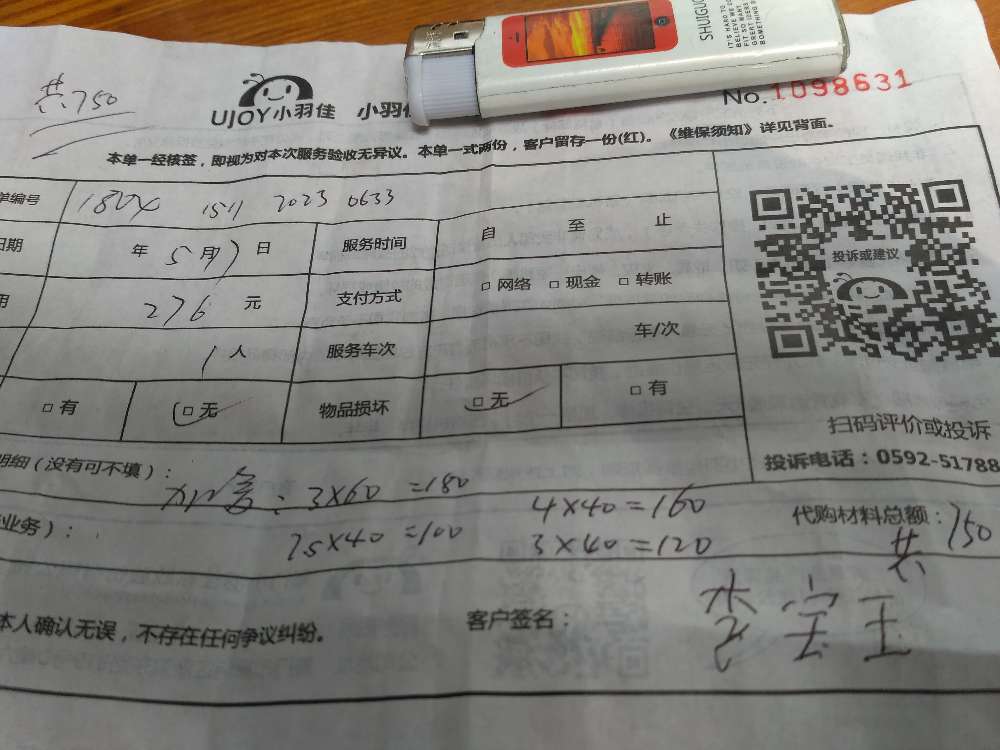 SHUIGUO
IT'S HARD TO
BELIEVE WE C
FIT SO WANT
GREAT IDERS
BOMETHING
共750
UJOY小羽佳 小羽
No.1098631
本单一经核签，即视为对本次服务验收无异议。本单一式两份，客户留存一份(红)。《维保须知》详见背面。
单编号 1511 2023 0633
日期 年 5月7日 服务时间 自 至 止
用 276 元 支付方式 □ 网络 □ 现金 □ 转账
1人 服务车次 车/次
□ 有 □ 无 物品损坏 □ 无 □ 有
投诉或建议
扫码评价或投诉
投诉电话：0592-51788
明细（没有可不填）：
3×60 =180 4×40=160 代购材料总额：750
业务）： 25×40 =100 3×40=120 共
本人确认无误，不存在任何争议纠纷。 客户签名：